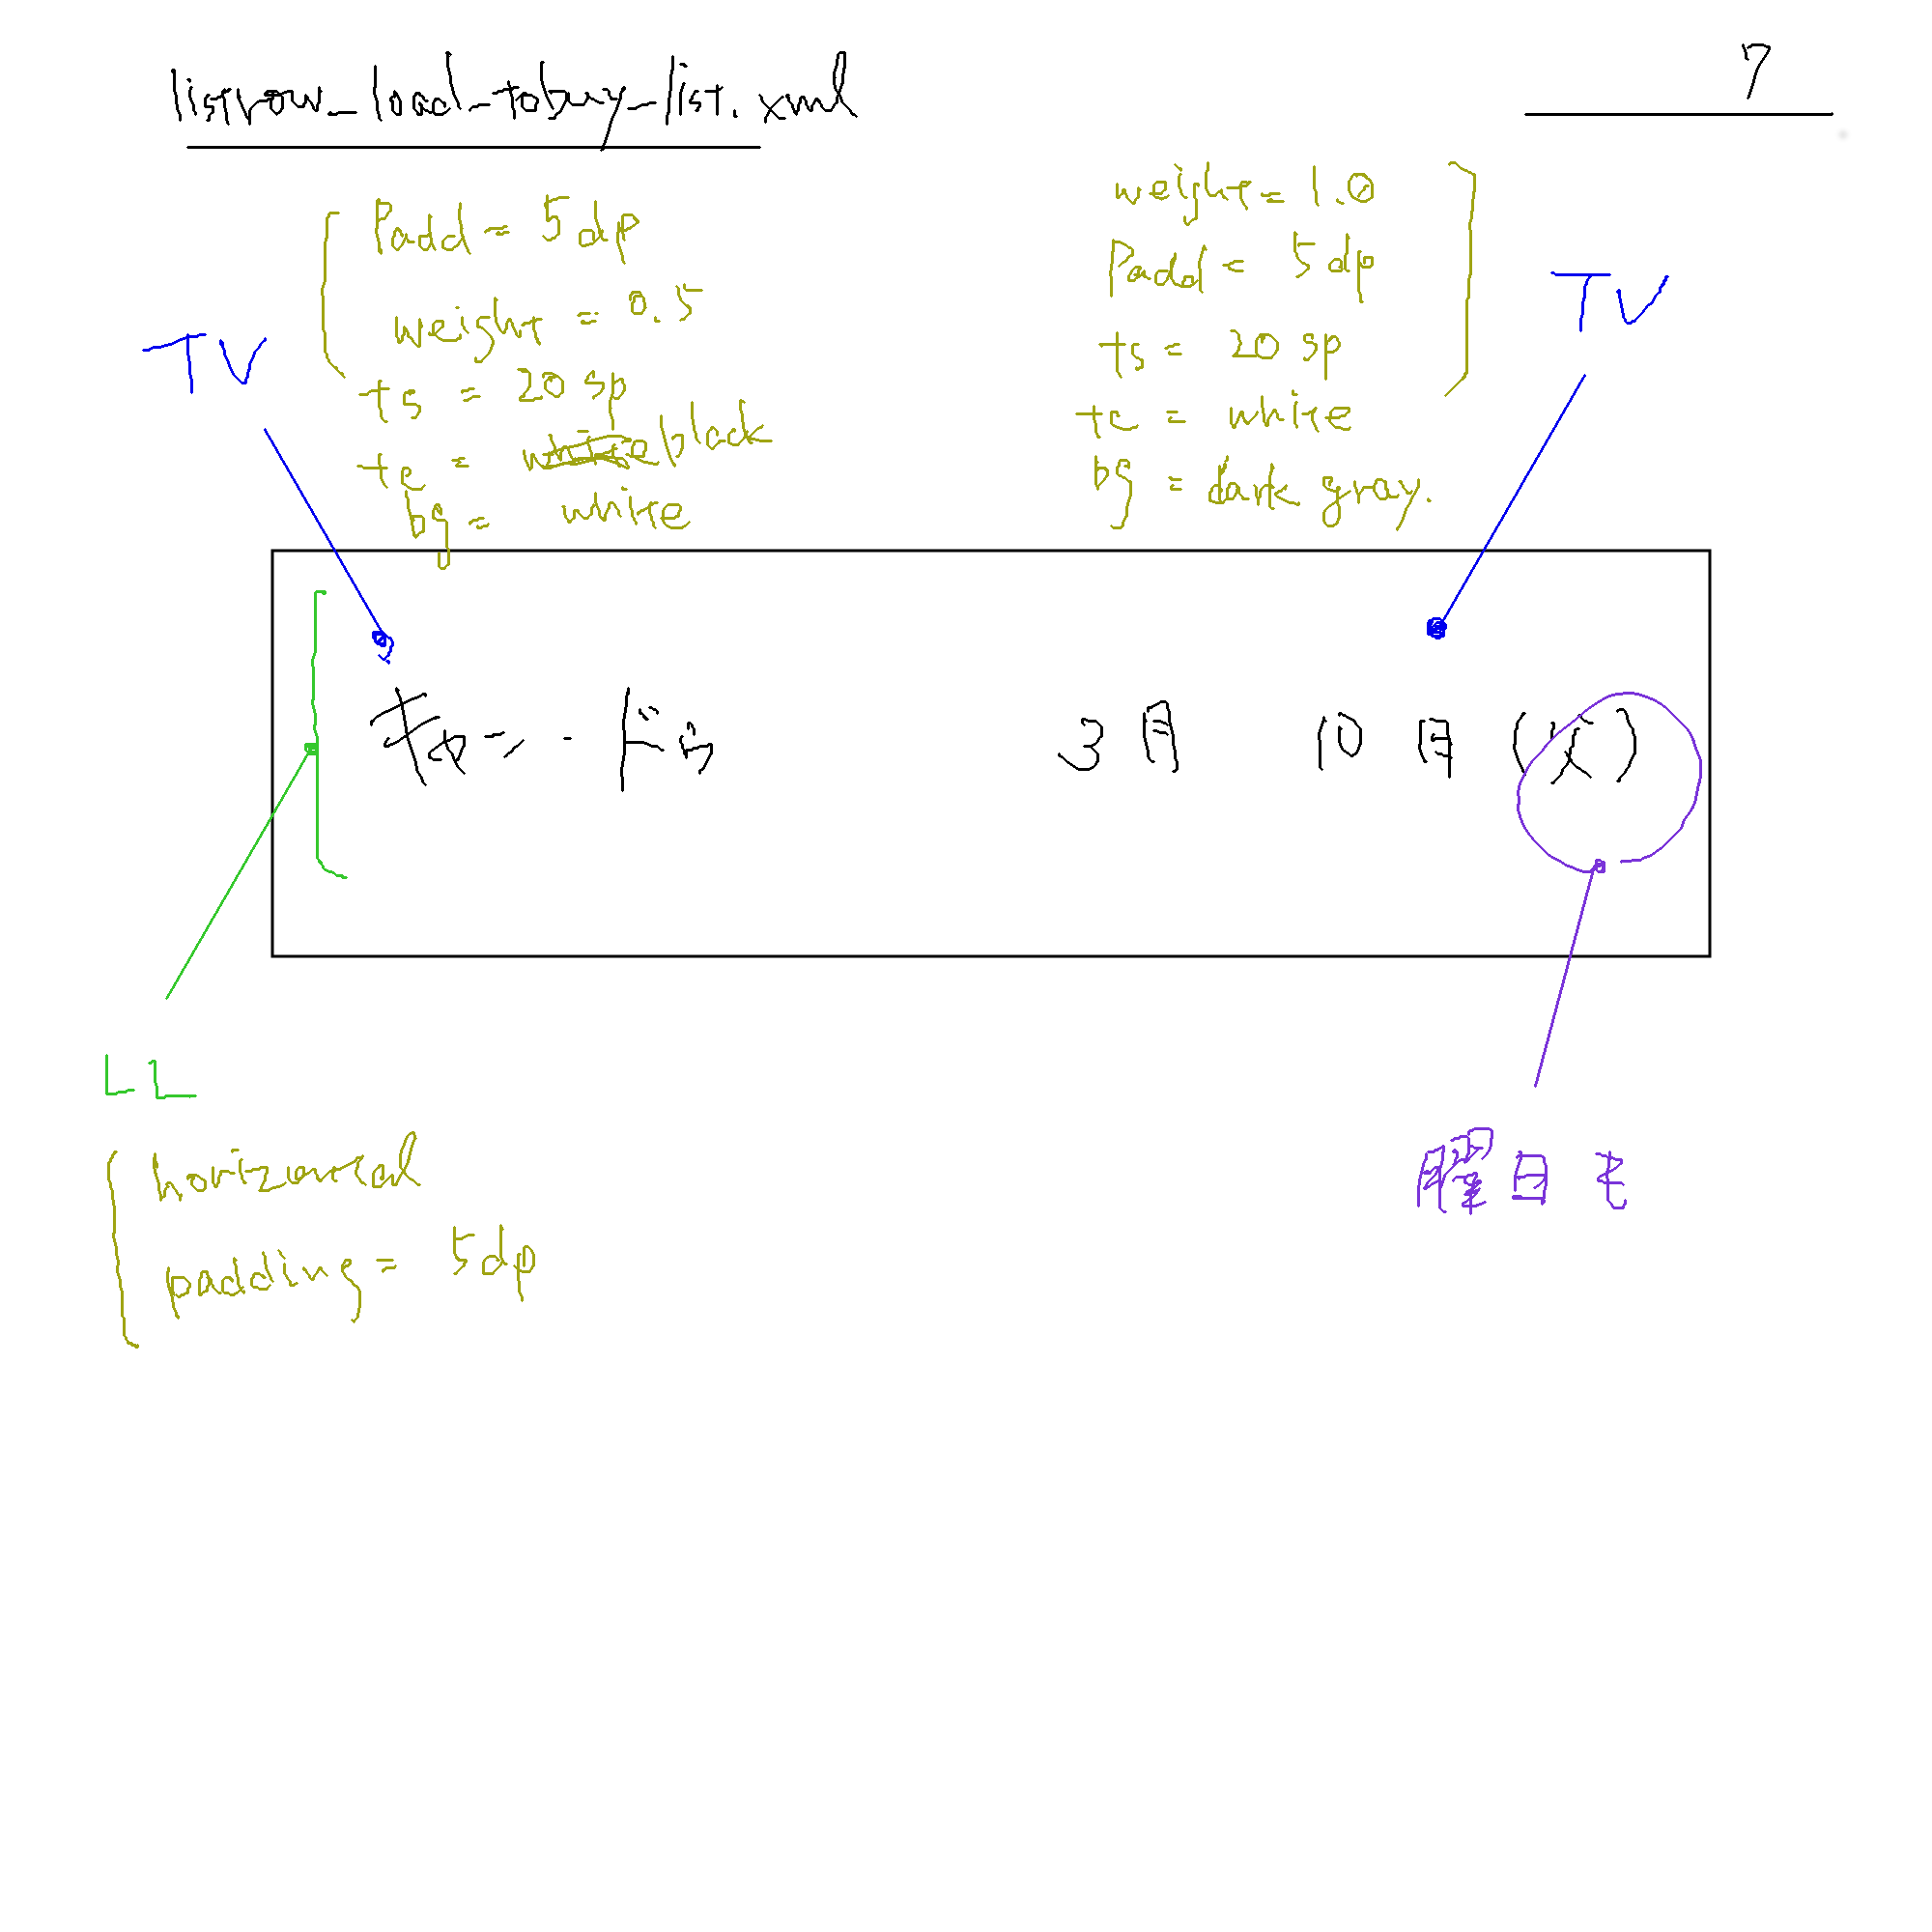 listrow_load_tobuy_list.xml
7
Padd = 5dp
weight = 0.5
ts = 20 sp
tc = white black
bg = white
TV
weight = 1.0
Padd = 5dp
ts = 20 sp
tc = white
bg = dark gray.
TV
3月 10日 (火)
LL
horizontal
padding = 5dp
曜日も